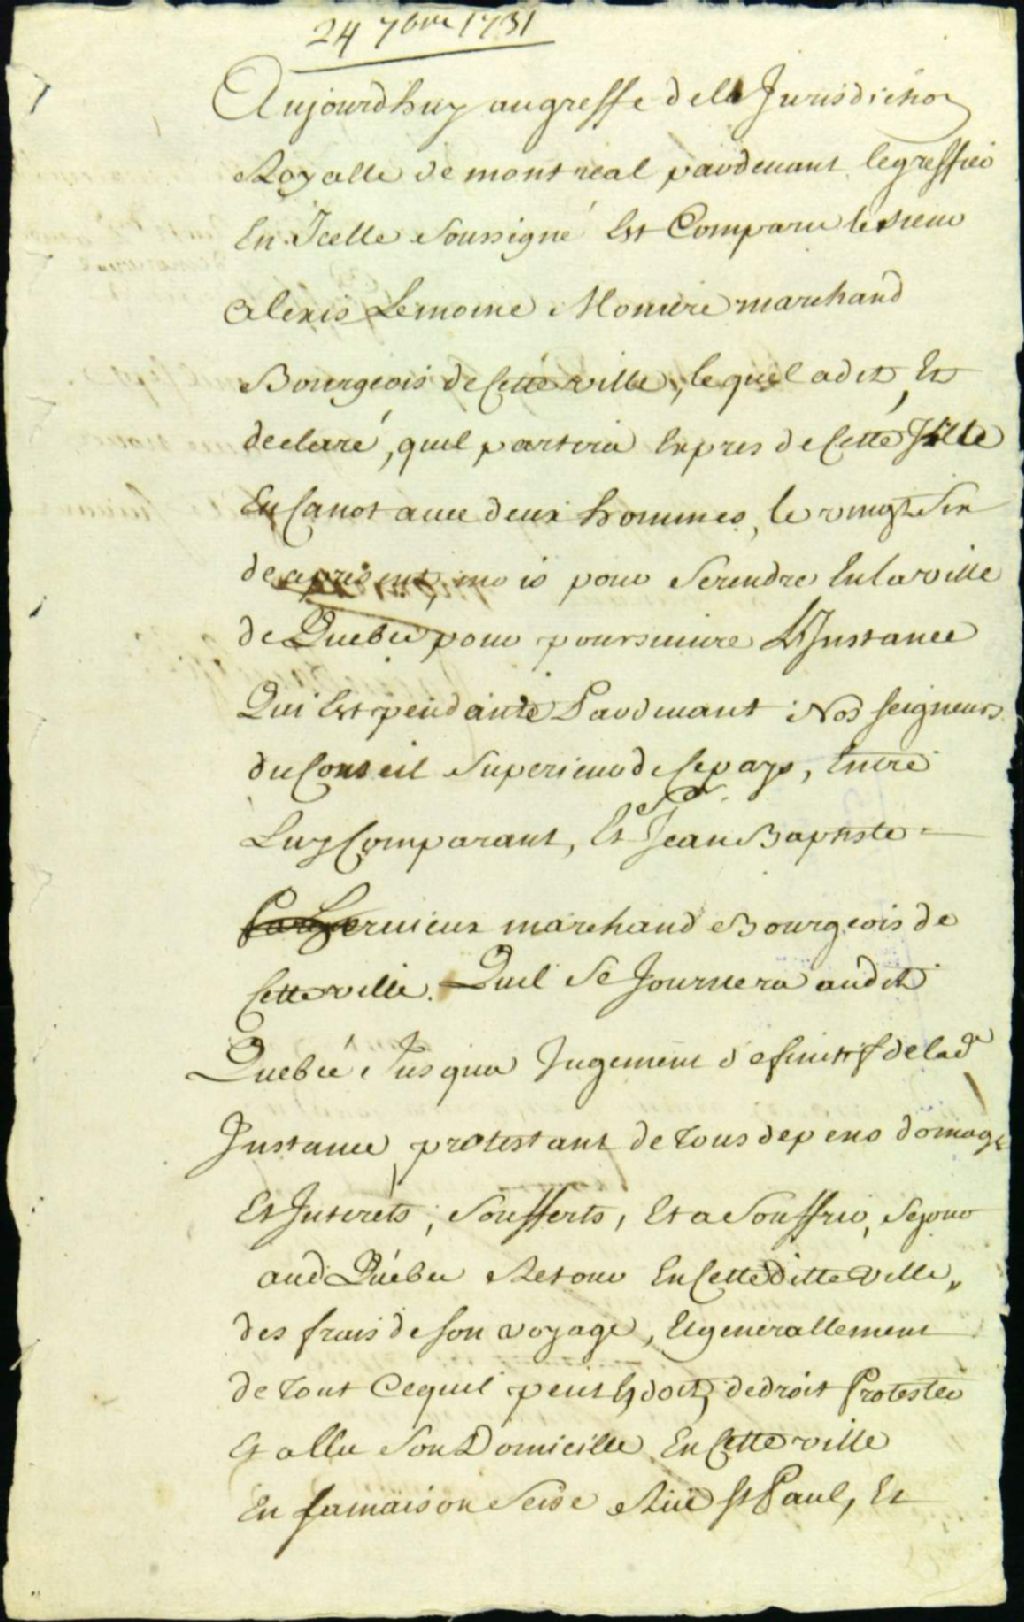 24 7bre 1731
Aujourdhuy au greffe de la Jurisdiction
Royalle de montreal pardevant le greffier
En Icelle Soussigné Est Comparu le sieur
Alexis Lemoine Moniere marchand
Bourgeois de Cette ville, lequel a dit, Et
declaré, quil partira Expres de Cette Ville
En Canot avec deux hommes, le vingt Six
de apresent mois pour Se rendre En la ville
de Quebec pour poursuivre L'Instance
Qui Est pendante Pardevant Nos seigneurs
du Conseil Superieur de Ce pays, Entre
Luy Comparant, Et Sr. Jean Baptiste
Hervieux marchand Bourgeois de
Cette ville. Quil Se Journera audit
Quebec Jusqua Jugement definitif de lade
Instance, protestant de tous depens domage
Et Interets, Soufferts, Et a Souffrir, Sejour
aud Québec Retour En Cette ditte Ville,
des frais de son voyage, Et generallement
de tout Ce quil peut Et doit, de droit Protester
Et a Elu Son Domicille En Cette ville
En sa maison Seise Rüe St Paul, Et